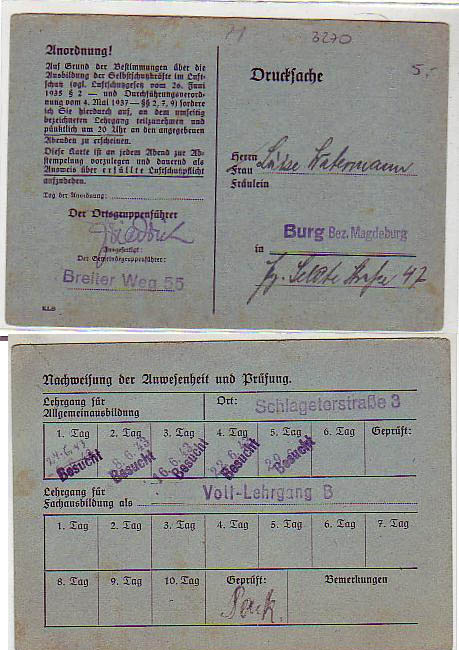 3270
5.-
Anordnung!
Auf Grund der Bestimmungen über die
Ausbildung der Selbstschutzkräfte im Luft-
schutz (vgl. Luftschutzgesetz vom 26. Juni
1935 § 2 — und Durchführungsverord-
nung vom 4. Mai 1937 — §§ 2, 7, 9) fordere
ich Sie hierdurch auf, an dem umseitig
bezeichneten Lehrgang teilzunehmen und
pünktlich um 20 Uhr an den angegebenen
Abenden zu erscheinen.
Diese Karte ist an jedem Abend zur Ab-
stempelung vorzulegen und dauernd als
Ausweis über erfüllte Luftschutzpflicht
aufzuheben.
Tag der Anordnung:
Der Ortsgruppenführer
Ausgefertigt:
Der Gemeindegruppenführer:
Breiter Weg 55
Drucksache
Herrn
Frau
Fräulein
Burg Bez. Magdeburg
in
47
Nachweisung der Anwesenheit und Prüfung.
Lehrgang für
Allgemeinausbildung
Ort: Schlageterstraße 3
1. Tag 2. Tag 3. Tag 4. Tag 5. Tag 6. Tag Geprüft:
Besucht Besucht Besucht Besucht Besucht
Lehrgang für
Fachausbildung als Voll-Lehrgang B
1. Tag 2. Tag 3. Tag 4. Tag 5. Tag 6. Tag 7. Tag
8. Tag 9. Tag 10. Tag Geprüft: Bemerkungen